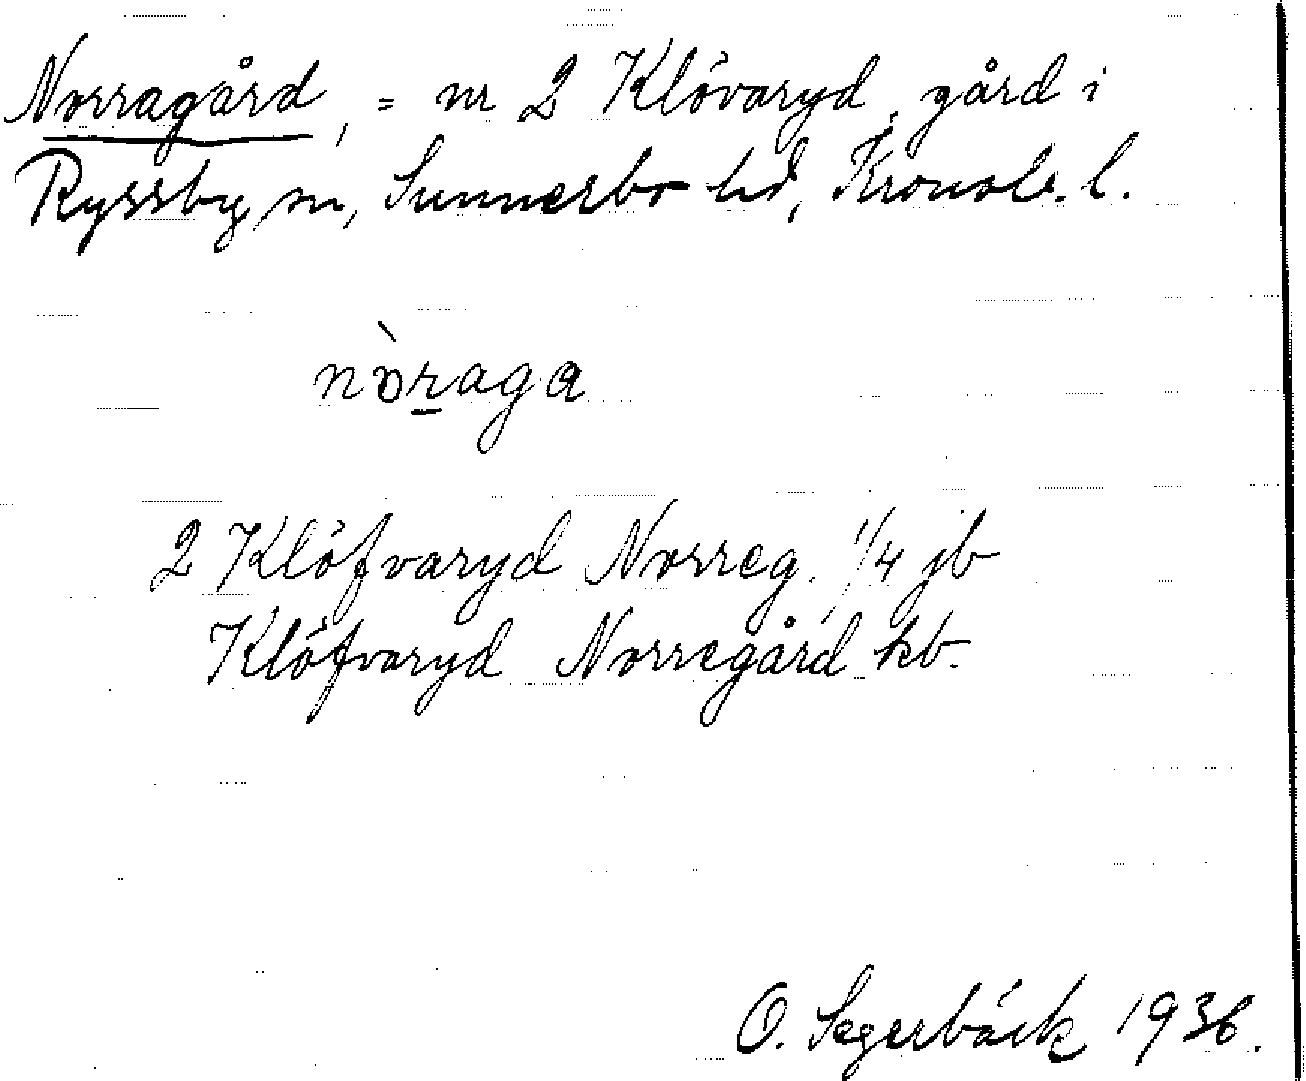 Norragård, = nr 2 Klövaryd, gård i
Ryssby sn, Sunnerbo hd, Kronob. l.
nòr̲aga
2 Klöfvaryd Norreg. 1/4 jb
Klöfvaryd Norregård kb.
O. Segerbäck 1936.